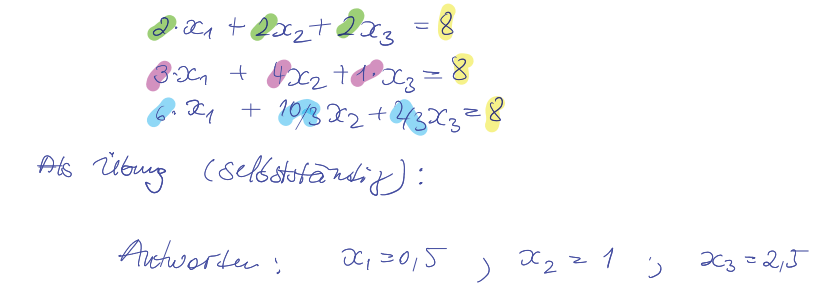 2·x₁ + 2x₂ + 2x₃ = 8
3·x₁ + 4x₂ + 1·x₃ = 8
6·x₁ + 10/3 x₂ + 2/3 x₃ = 8
Als Übung (selbstständig):
Antworten: x₁ = 0,5 ; x₂ = 1 ; x₃ = 2,5